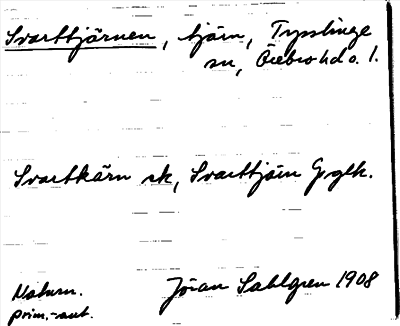 Svarttjärnen, tjärn, Tysslinge
sn, Örebro hd o. l.
Svartkärn sk, Svarttjärn Gglk.
Jöran Sahlgren 1908
Naturn.
prim.-ant.